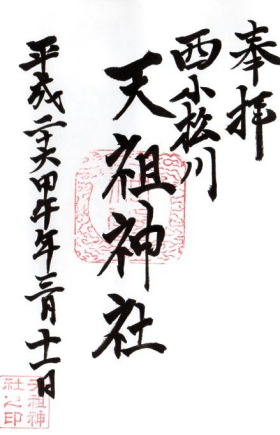 奉拝
西小松川
天祖神社
平成二十六甲午年三月十一日
天祖神
社之印